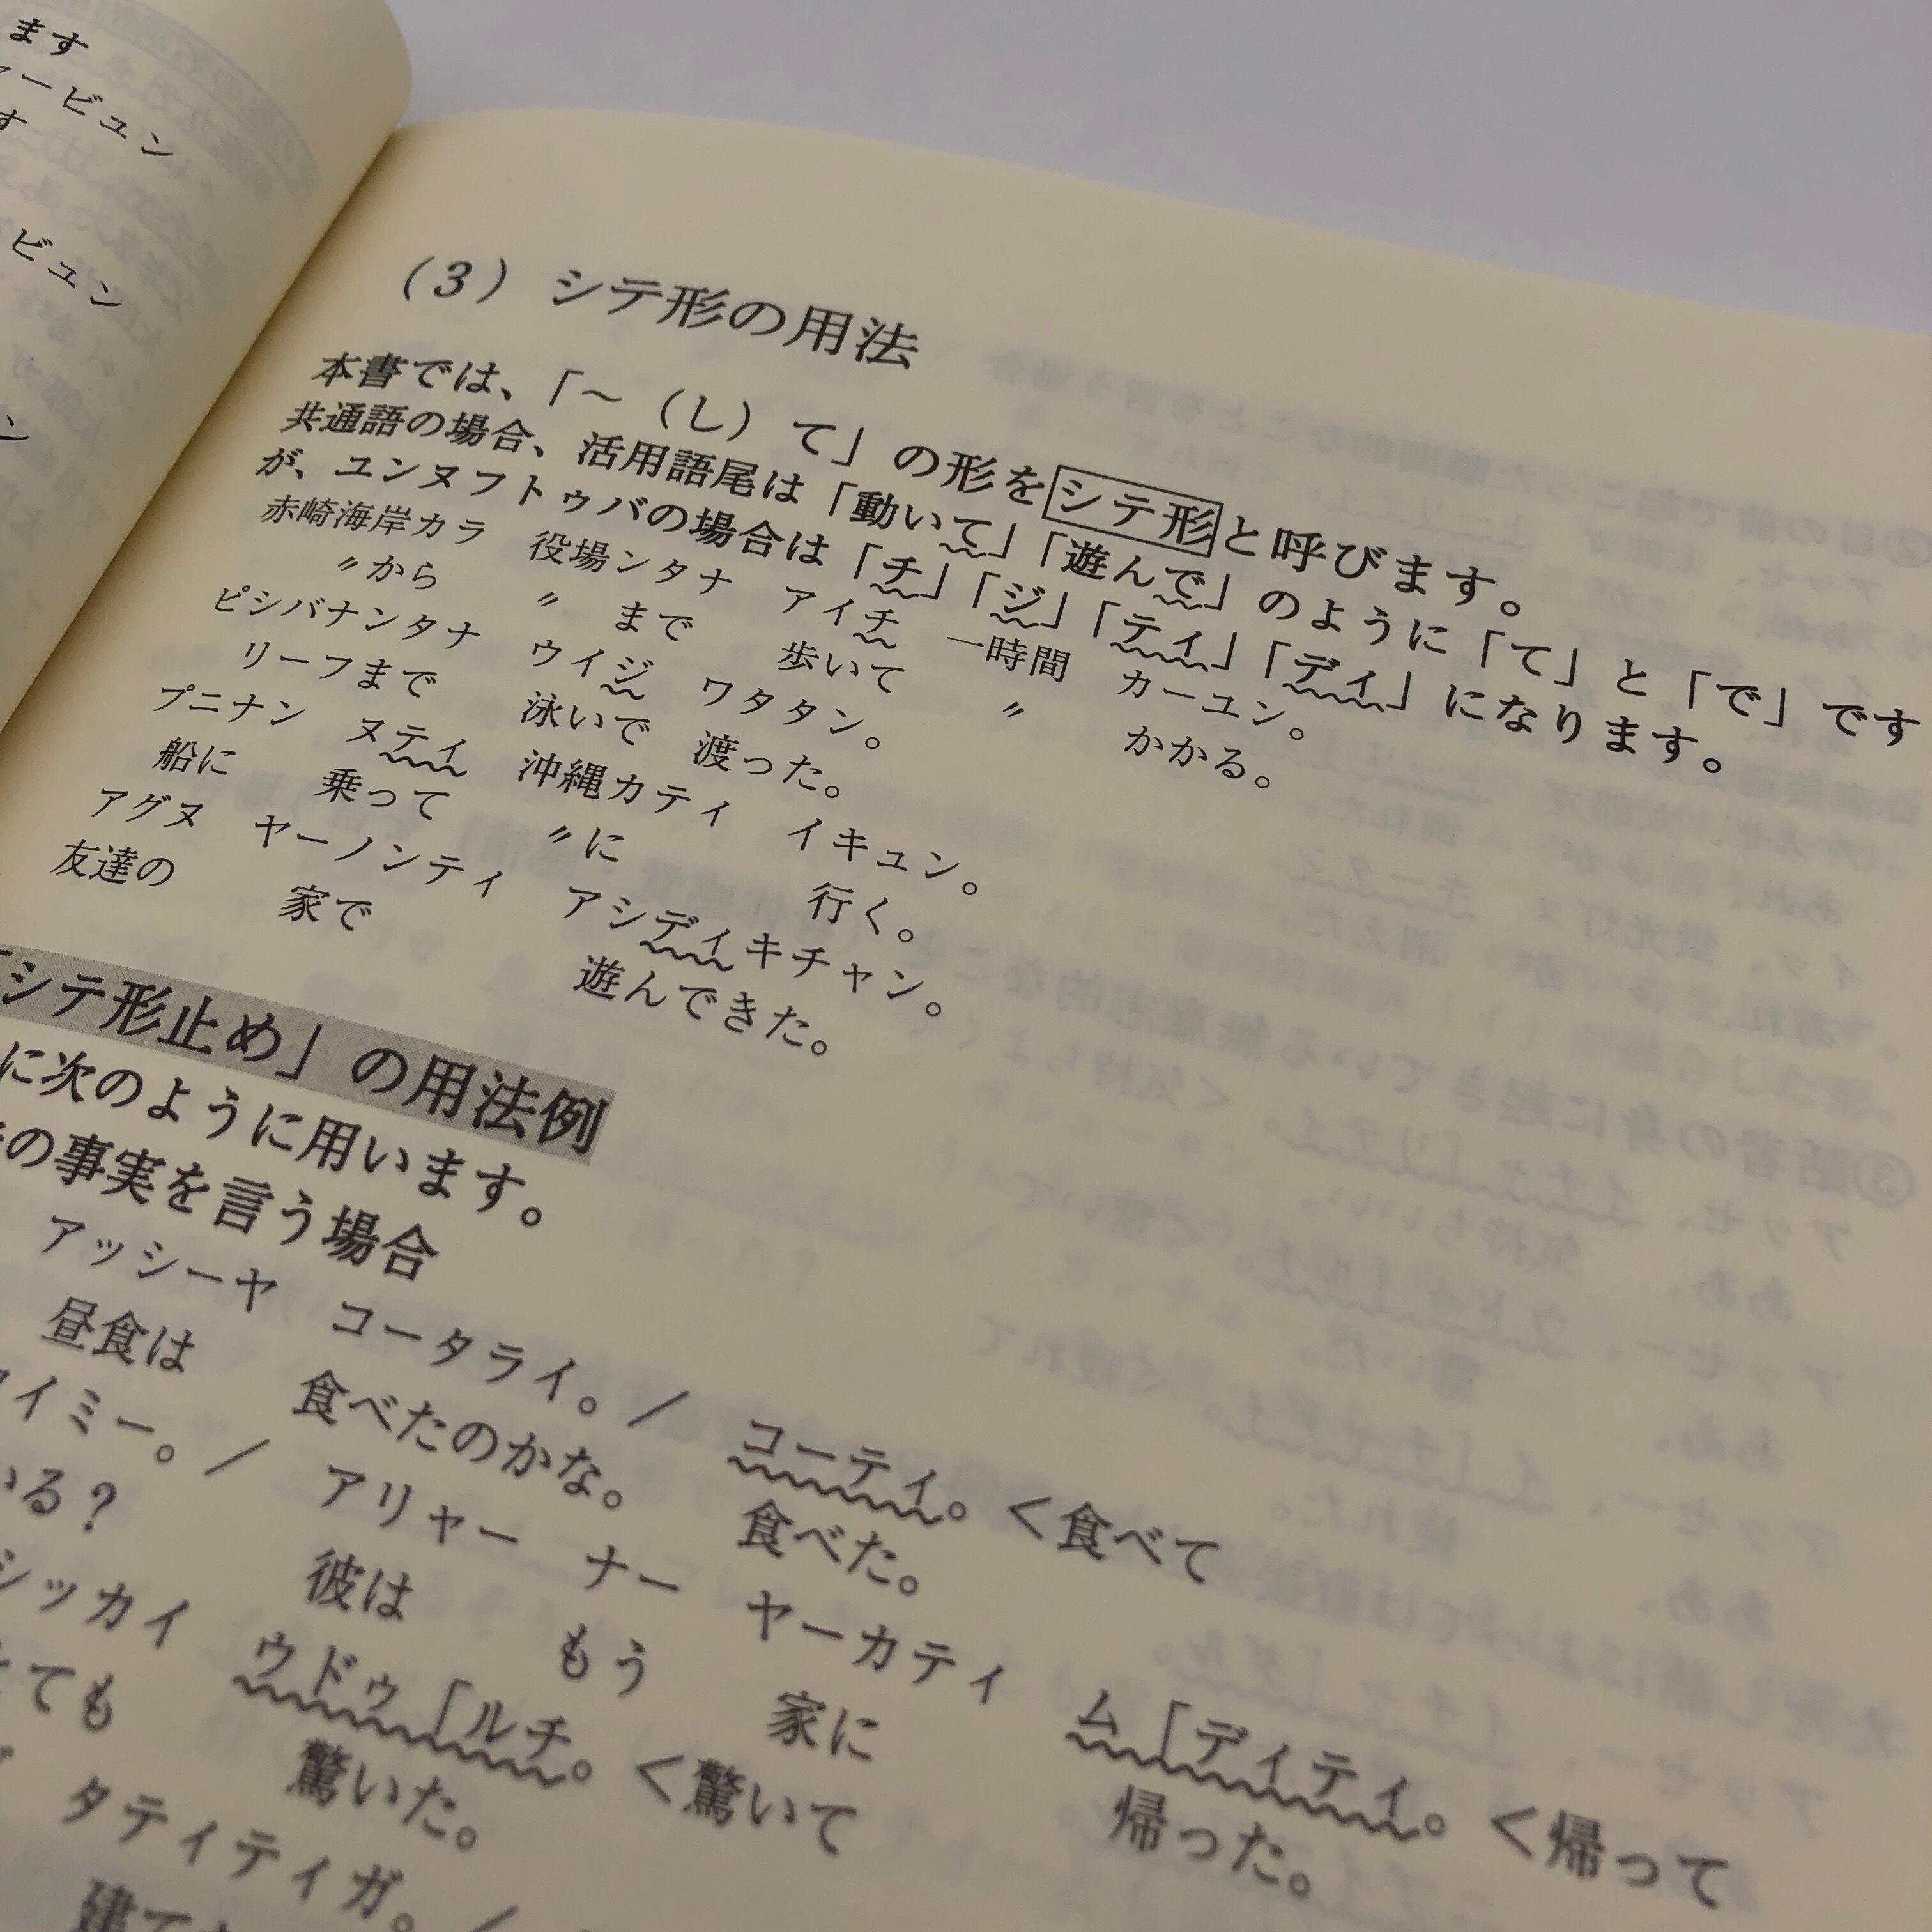 ます
ービュン
す
ビュン
ン
(3) シテ形の用法
本書では、「～（し）て」の形をシテ形と呼びます。
共通語の場合、活用語尾は「動いて」「遊んで」のように「て」と「で」です
が、ユンヌフトゥバの場合は「チ」「ジ」「ティ」「ディ」になります。
赤崎海岸カラ 役場ンタナ アイチ 一時間 カーユン。
〃から 〃 まで 歩いて 〃 かかる。
ピシバナンタナ ウイジ ワタタン。
リーフまで 泳いで 渡った。
プニナン ヌティ 沖縄カティ イキュン。
船に 乗って 〃に 行く。
アグヌ ヤーノンティ アシディキチャン。
友達の 家で 遊んできた。
「シテ形止め」の用法例
に次のように用います。
の事実を言う場合
アッシーヤ コータライ。／ コーティ。＜食べて
昼食は 食べたのかな。 食べた。
イミー。／ アリャー ナー ヤーカティ ム「ディティ。＜帰って
いる？ 彼は もう 家に 帰った。
シッカイ ウドゥ「ルチ。＜驚いて
ても 驚いた。
タティティガ。／
建て